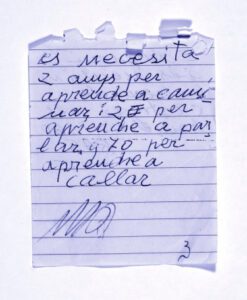 es necesita
2 anys per
aprende a cami
nar i 2 per
aprendre a par
lar y 70 per
aprendre a
callar
3